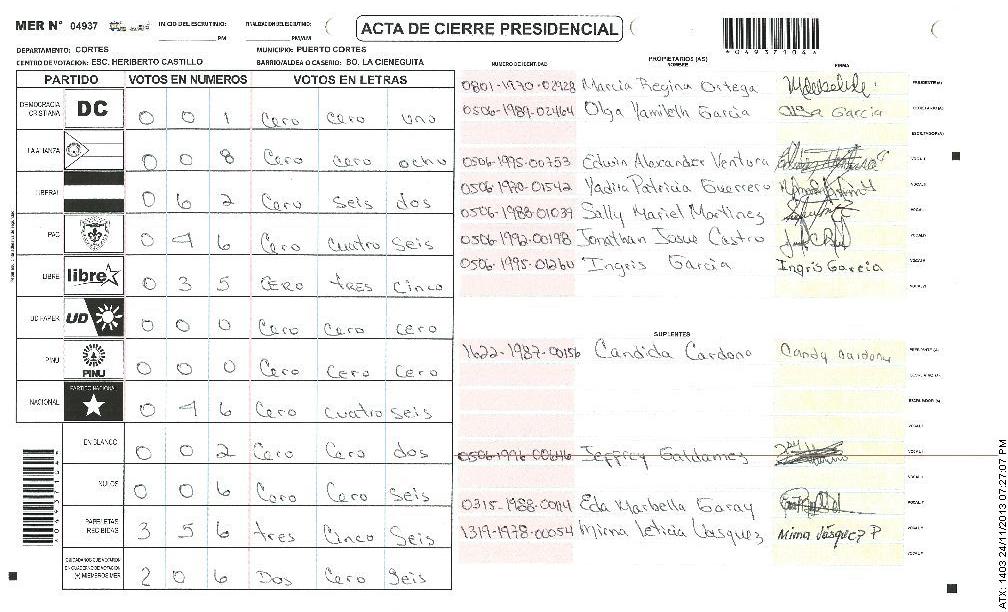 MER N° 04937
INICIO DEL ESCRUTINIO: PM
FINALIZACION DEL ESCRUTINIO: PM/AM
ACTA DE CIERRE PRESIDENCIAL
*04937104*
DEPARTAMENTO: CORTES
MUNICIPIO: PUERTO CORTES
CENTRO DE VOTACION: ESC. HERIBERTO CASTILLO
BARRIO/ALDEA O CASERIO: BO. LA CIENEGUITA
PARTIDO VOTOS EN NUMEROS VOTOS EN LETRAS
DEMOCRACIA CRISTIANA DC 0 0 1 Cero cero uno
LA ALIANZA 0 0 8 Cero cero ocho
LIBERAL 0 6 2 Cero seis dos
PAC 0 4 6 Cero cuatro seis
LIBRE libre 0 3 5 CERO tres cinco
UD FAPER UD 0 0 0 Cero Cero cero
PINU PINU 0 0 0 Cero Cero cero
NACIONAL PARTIDO NACIONAL 0 4 6 Cero cuatro seis
EN BLANCO 0 0 2 Cero Cero dos
NULOS 0 0 6 Cero Cero seis
PAPELETAS RECIBIDAS 3 5 6 tres Cinco Seis
CIUDADANOS QUE VOTARON EN CUADERNO DE VOTACION (+) MIEMBROS MER 2 0 6 Dos Cero seis
NUMERO DE IDENTIDAD
PROPIETARIOS (AS)
NOMBRE
FIRMA
0801-1970-02928 Marcia Regina Ortega PRESIDENTE (A)
0506-1989-02464 Olga Yamileth Garcia Olga Garcia SECRETARIO (A)
ESCRUTADOR (A)
0506-1995-00753 Edwin Alexander Ventura VOCAL I
0506-1970-01542 Yadira Patricia Guerrero
0506-1988-01039 Sally Mariel Martinez
0506-1992-00198 Jonathan Josue Castro
0506-1995-01260 Ingris Garcia Ingris Garcia
SUPLENTES
1622-1987-00156 Candida Cardona Candy Cardona
0506-1996-00646 Jeffrey Galdamez
0315-1988-00114 Eda Marbella Garay
1319-1978-00054 Mirna Leticia Vasquez Mirna Vásquez P
ATX: 1403 24/11/2013 07:27:07 PM